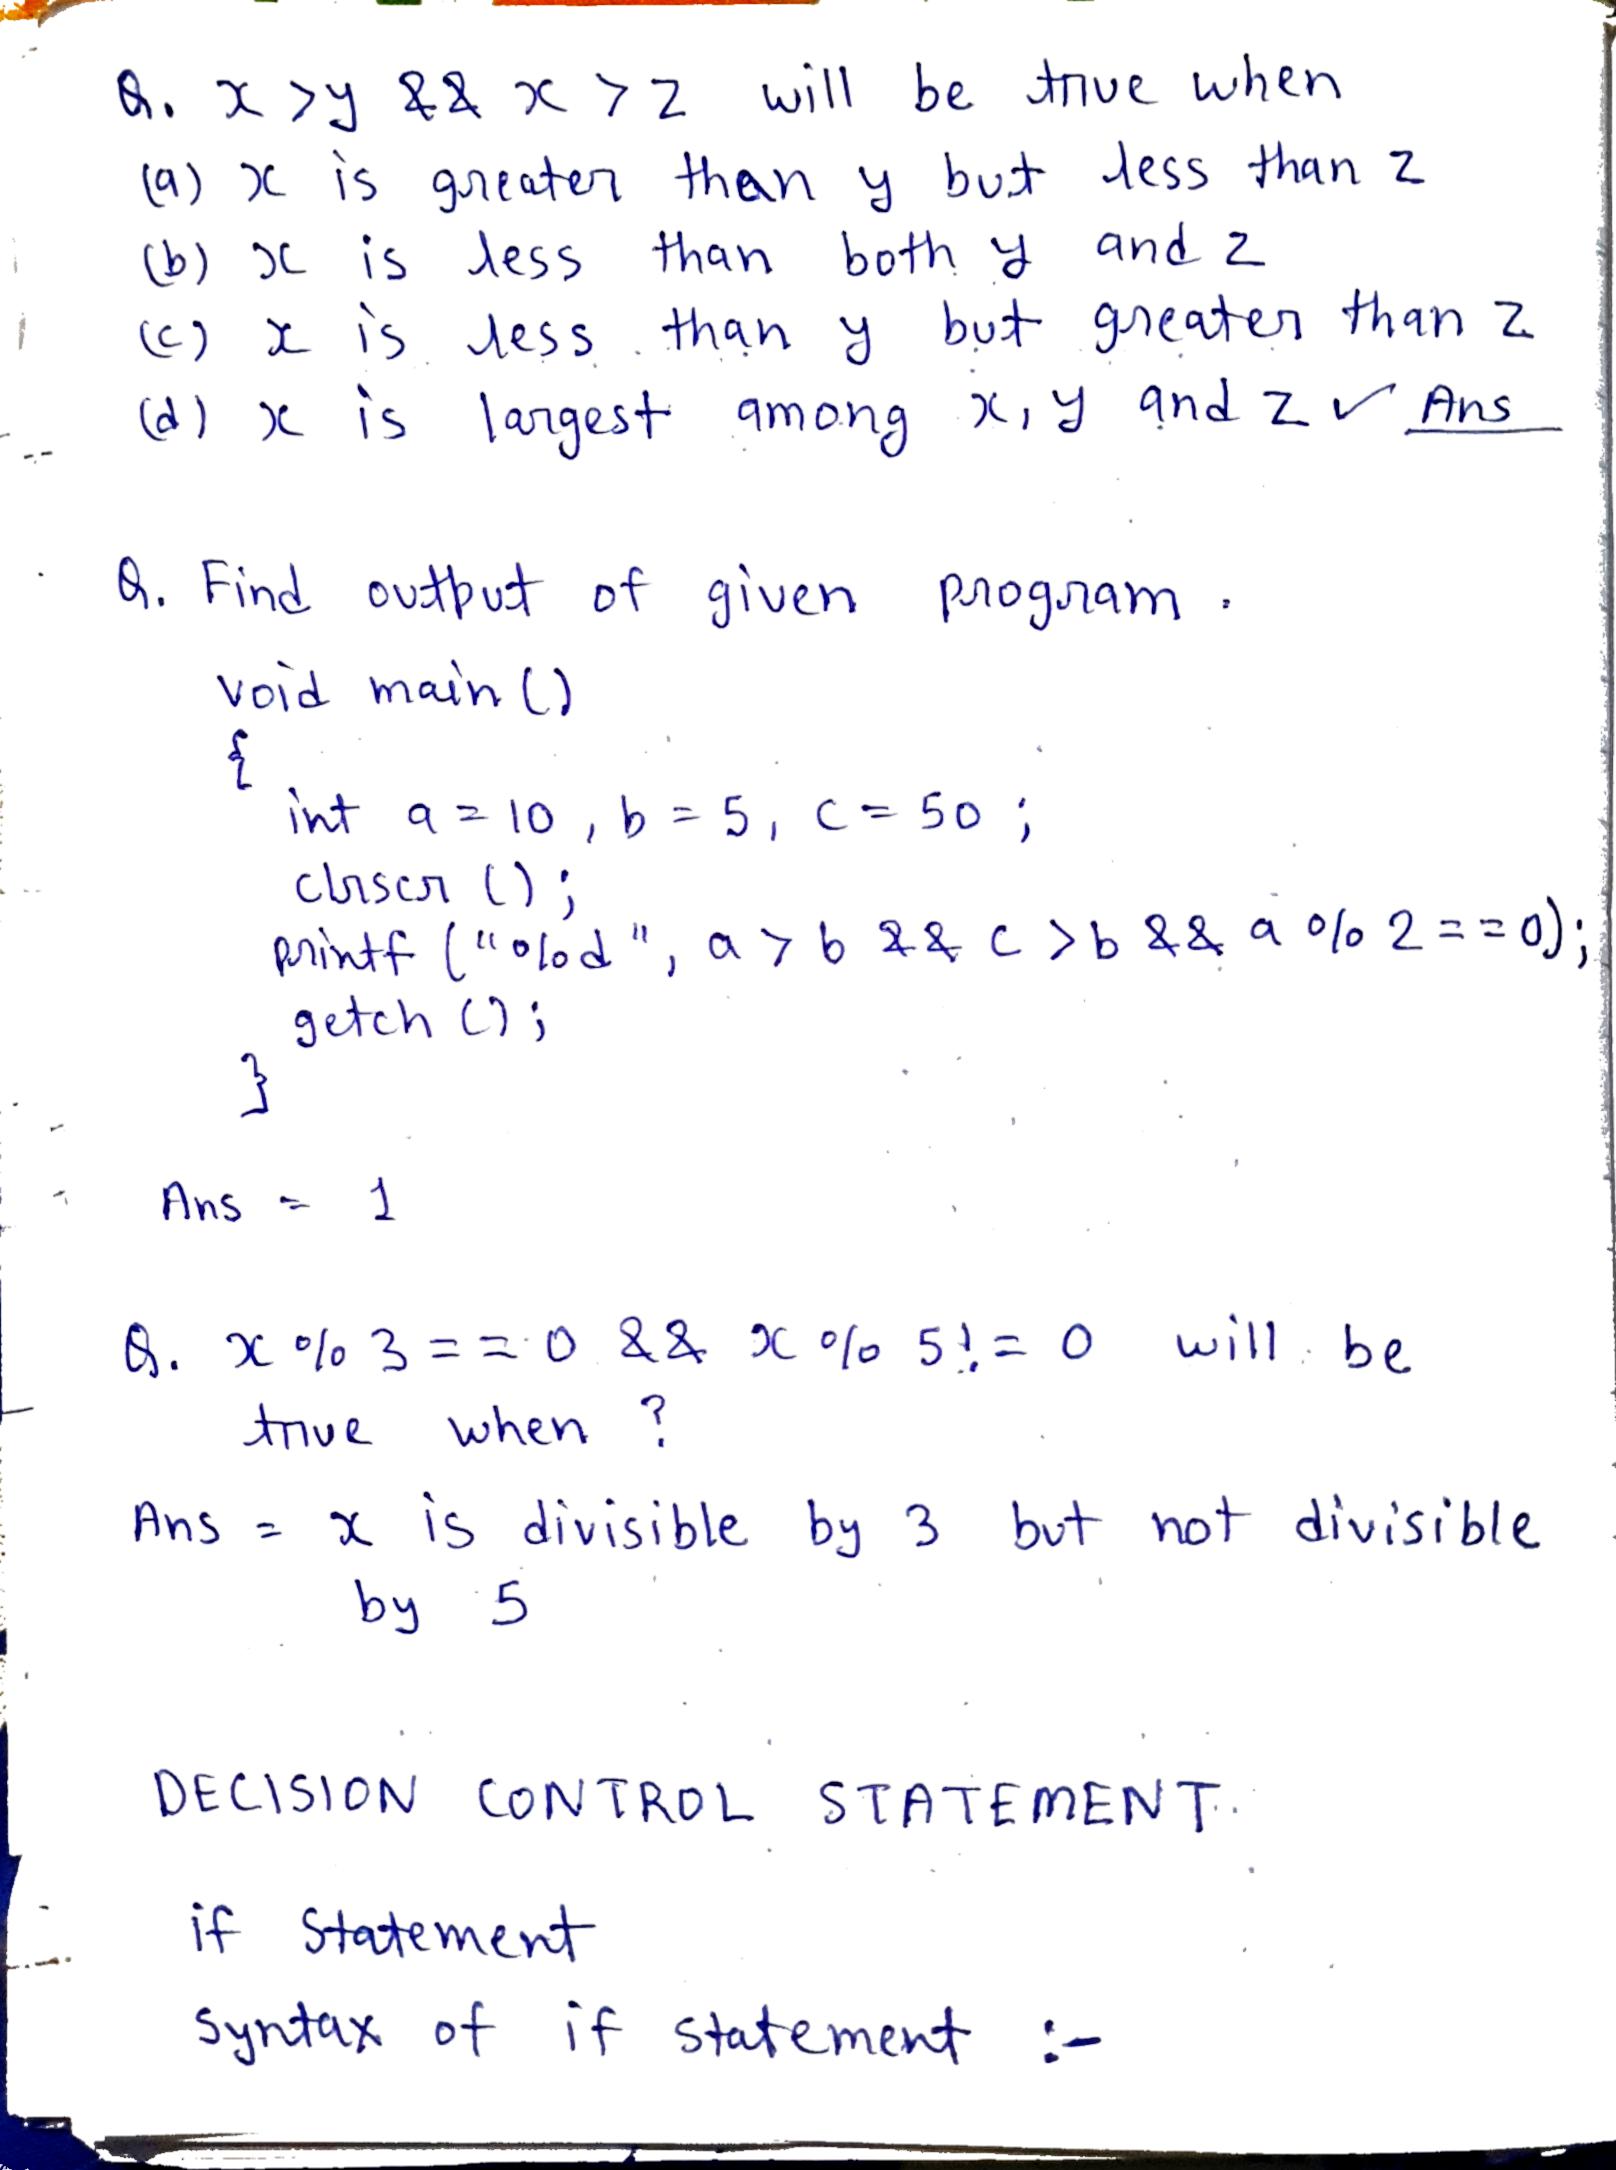 Q. x > y && x > z will be true when
(a) x is greater than y but less than z
(b) x is less than both y and z
(c) x is less than y but greater than z
(d) x is largest among x, y and z ✓ Ans
Q. Find output of given program.
void main()
{
int a = 10, b = 5, c = 50;
clrscr();
printf("%d", a > b && c > b && a % 2 == 0);
getch();
}
Ans = 1
Q. x % 3 == 0 && x % 5 != 0 will be
true when ?
Ans = x is divisible by 3 but not divisible
by 5
DECISION CONTROL STATEMENT.
if Statement
Syntax of if statement :-